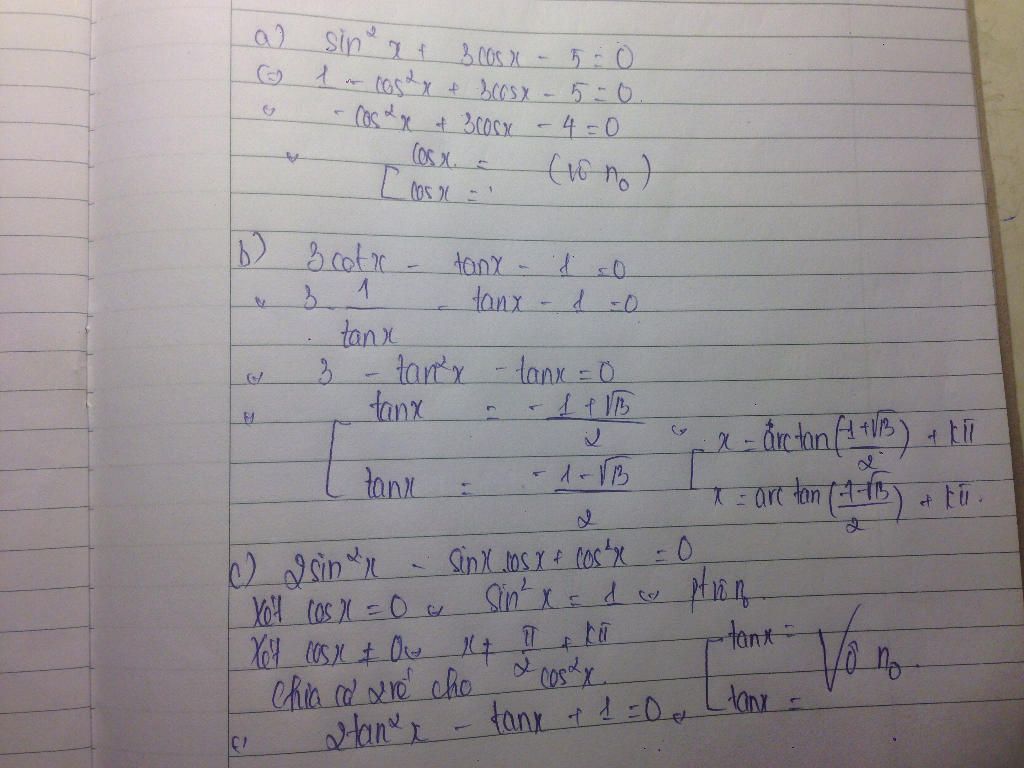 a) sin²x + 3cosx - 5 = 0
⇔ 1 - cos²x + 3cosx - 5 = 0.
⇔ -cos²x + 3cosx - 4 = 0
⇔ [ cosx. = (vô no)
[ cosx =
b) 3cotx - tanx - 1 = 0
⇔ 3 1/tanx - tanx - 1 = 0
⇔ 3 - tan²x - tanx = 0
⇔ [ tanx = (-1+√13)/2 ⇔ [ x = arctan((-1+√13)/2) + kπ
[ tanx = (-1-√13)/2 [ x = arctan((-1-√13)/2) + kπ.
c) 2sin²x - sinx.cosx + cos²x = 0
Xét cosx = 0 ⇔ sin²x = 1 ⇔ pt vô no
Xét cosx ≠ 0 ⇔ x ≠ π/2 + kπ
Chia cả 2 vế cho cos²x.
⇔ 2tan²x - tanx + 1 = 0 ⇔ [ tanx = Vô no.
[ tanx =